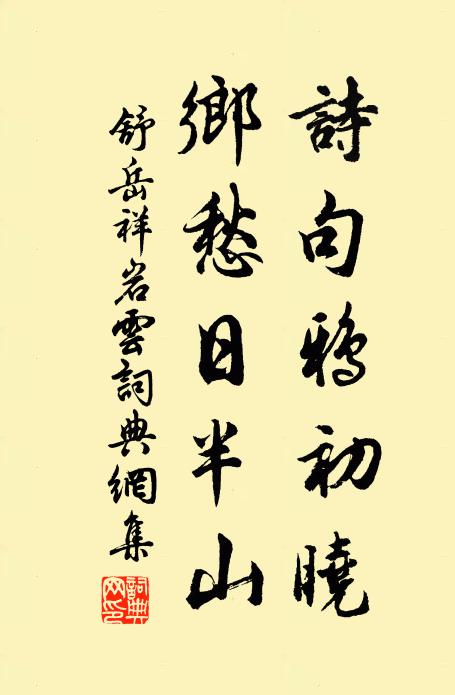 詩句鴉初曉
鄉愁日半山
舒岳祥岩雲詞典網集
詞典網印